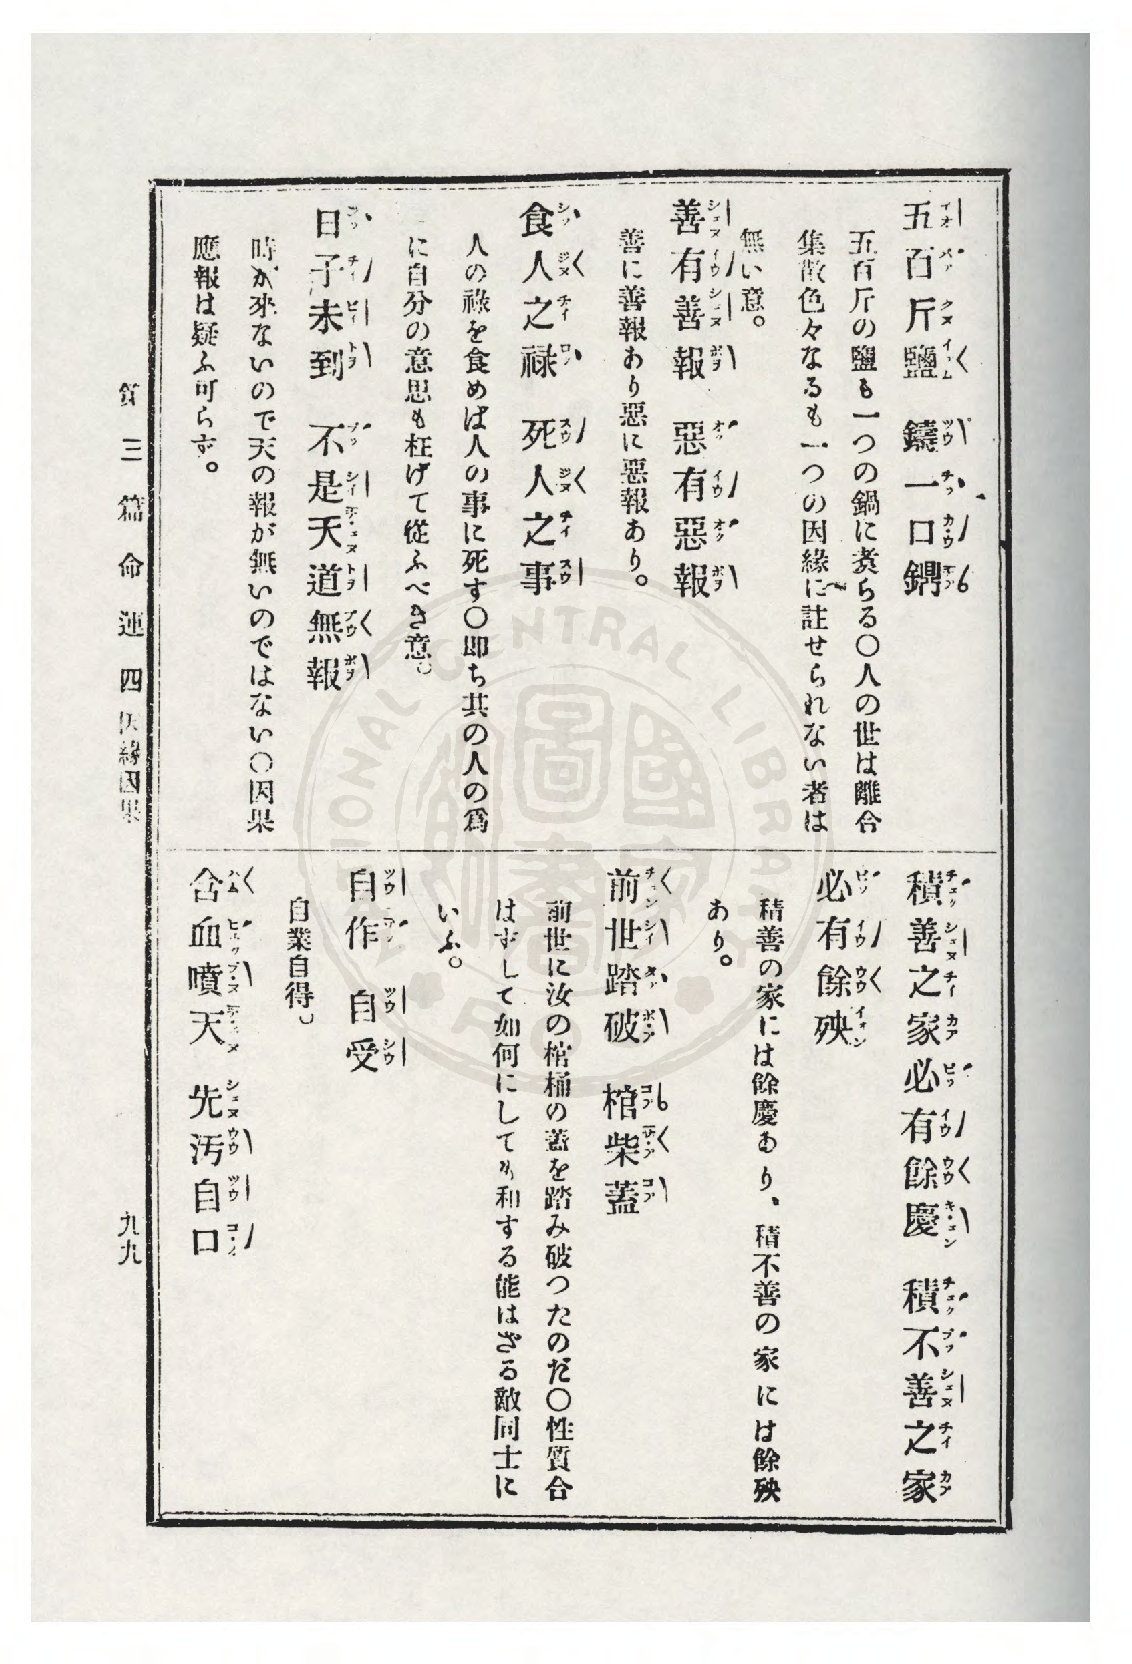 五百斤鹽 鑄一口鐫
五百斤の鹽も一つの鍋に煑らる〇人の世は離合
集散色々なるも一つの因緣に註せられない者は
無い意。
善有善報 惡有惡報
善に善報あり惡に惡報あり。
食人之祿 死人之事
人の祿を食めば人の事に死す〇卽ち其の人の爲
に自分の意思も枉げて從ふべき意。
日子未到 不是天道無報
時が來ないので天の報が無いのではない〇因果
應報は疑ふ可らず。
積善之家必有餘慶 積不善之家
必有餘殃
積善の家には餘慶あり、積不善の家には餘殃
あり。
前世踏破 棺柴蓋
前世に汝の棺桶の蓋を踏み破つたのだ〇性質合
はずして如何にしても和する能はざる敵同士に
いふ。
自作 自受
自業自得。
含血噴天 先汚自口
第三篇 命運 四 因緣因果
九九
NATIONAL CENTRAL LIBRARY
國家圖書館